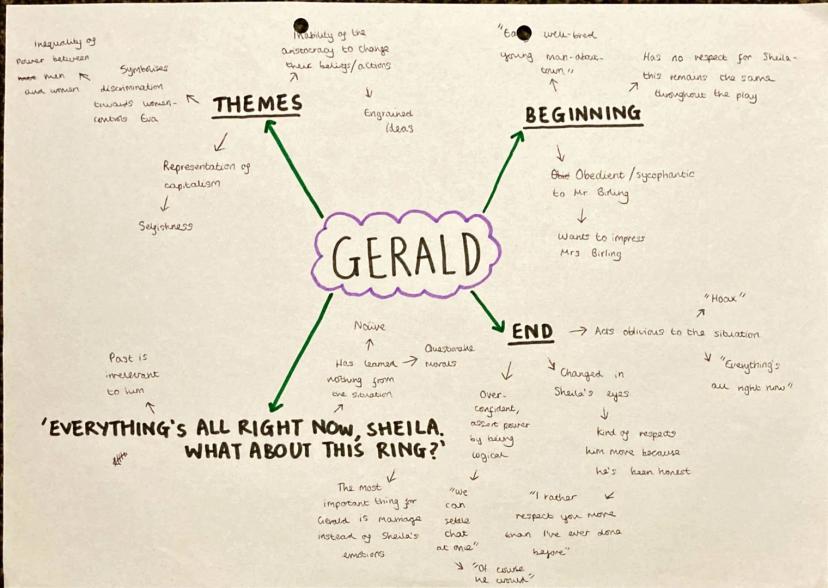 Inequality of
Power between
men
and women
Symbolises
discrimination
towards women-
controls Eva
THEMES
Inability of the
aristocracy to change
their beliefs/actions
Engrained
ideas
Representation of
capitalism
Selfishness
well-bred
young man-about-
town"
BEGINNING
Has no respect for Sheila-
this remains the same
throughout the play
Obedient/sycophantic
to Mr Birling
Wants to impress
Mrs Birling
GERALD
END
Acts oblivious to the situation
"Hoax"
"Everything's
all right now"
Changed in
Sheila's eyes
Kind of respects
him more because
he's been honest
"I rather
respect you more
than I've ever done
before"
Over-
confident,
assert power
by being
logical
"We
can
settle
that
at once"
"Of course
he would"
Naive
Has learned
nothing from
the situation
Questionable
morals
Past is
irrelevant
to him
'EVERYTHING'S ALL RIGHT NOW, SHEILA.
WHAT ABOUT THIS RING?'
The most
important thing for
Gerald is marriage
instead of Sheila's
emotions